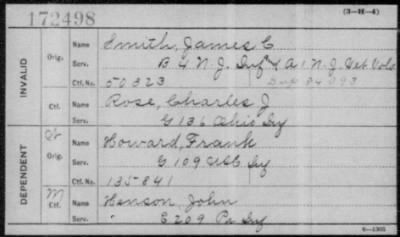 172498 (3-H-4)
INVALID
Orig. Name Smith, James C
Serv. B 4 N.J. Inf & A 1 N.J. Vet Vols
Ctf. No. 50323
Ctf. Name Rose, Charles J
Serv. G 136 Ohio Inf
DEPENDENT
W Orig. Name Howard, Frank
Serv. G 109 USC Inf
Ctf. No. 135841
M Ctf. Name Henson, John
Serv. " E 209 Pa Inf